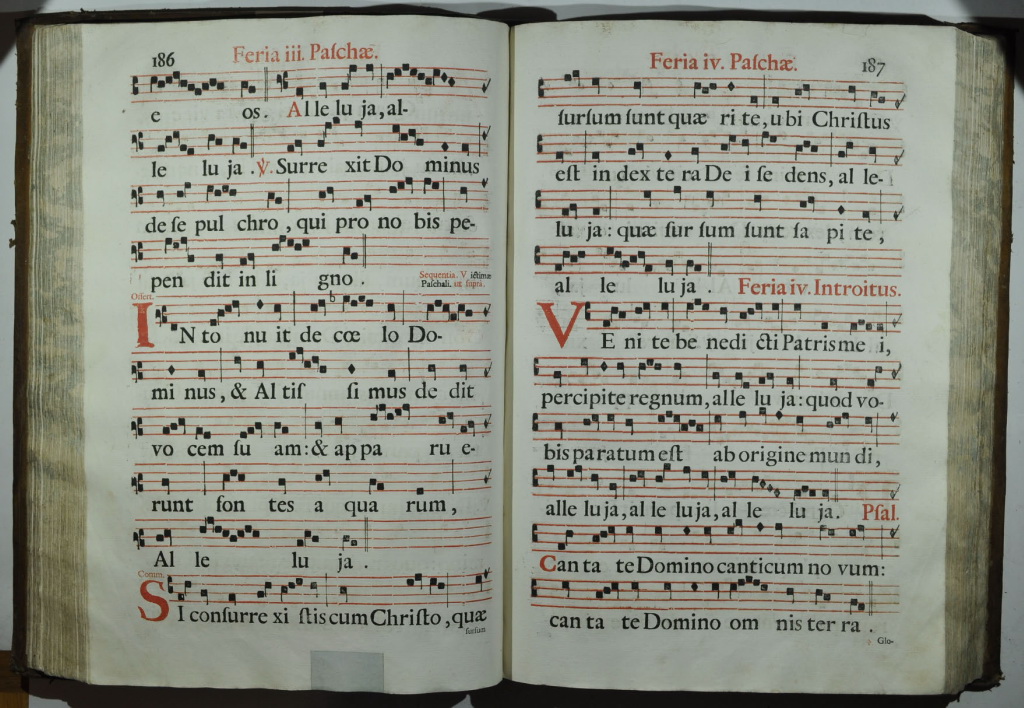 186 Feria iii. Paſchæ.
e os. Al le lu ja, al-
le lu ja. ℣. Surre xit Do minus
de ſe pul chro, qui pro no bis pe-
pen dit in li gno. Sequentia. Victimæ
Paſchali, ut ſuprà.
Offert.
IN to nu it de cœ lo Do-
mi nus, & Al tiſ ſi mus de dit
vo cem ſu am: & ap pa ru e-
runt fon tes a qua rum,
Al le lu ja.
Comm.
SI conſurre xi ſtis cum Chriſto, quæ
ſurſum
Feria iv. Paſchæ. 187
ſurſum ſunt quæ ri te, u bi Chriſtus
eſt in dex te ra De i ſe dens, al le-
lu ja: quæ ſur ſum ſunt ſa pi te,
al le lu ja. Feria iv. Introitus.
VE ni te be nedi cti Patris me i,
percipite regnum, alle lu ja: quod vo-
bis pa ratum eſt ab origine mun di,
alle lu ja, al le lu ja, al le lu ja. Pſal.
Can ta te Domino canticum no vum:
can ta te Domino om nis ter ra.
Glo-